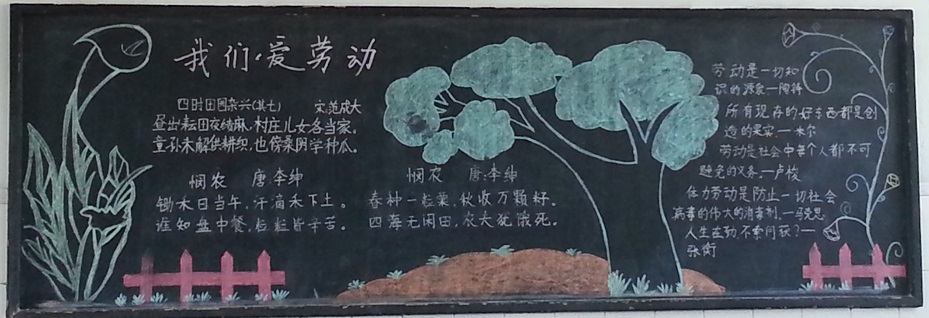 我们·爱劳动
四时田园杂兴(其七) 宋范成大
昼出耘田夜绩麻,村庄儿女各当家。
童孙未解供耕织,也傍桑阴学种瓜。
悯农 唐:李绅
锄禾日当午,汗滴禾下土。
谁知盘中餐,粒粒皆辛苦。
悯农 唐:李绅
春种一粒粟,秋收万颗籽。
四海无闲田,农夫犹饿死。
劳动是一切知
识的源泉—陶铸
所有现存的好东西都是创
造的果实—米尔
劳动是社会中每个人都不可
避免的义务—卢梭
体力劳动是防止一切社会
病毒的伟大的消毒剂。—马克思
人生在勤,不索何获?—
张衡